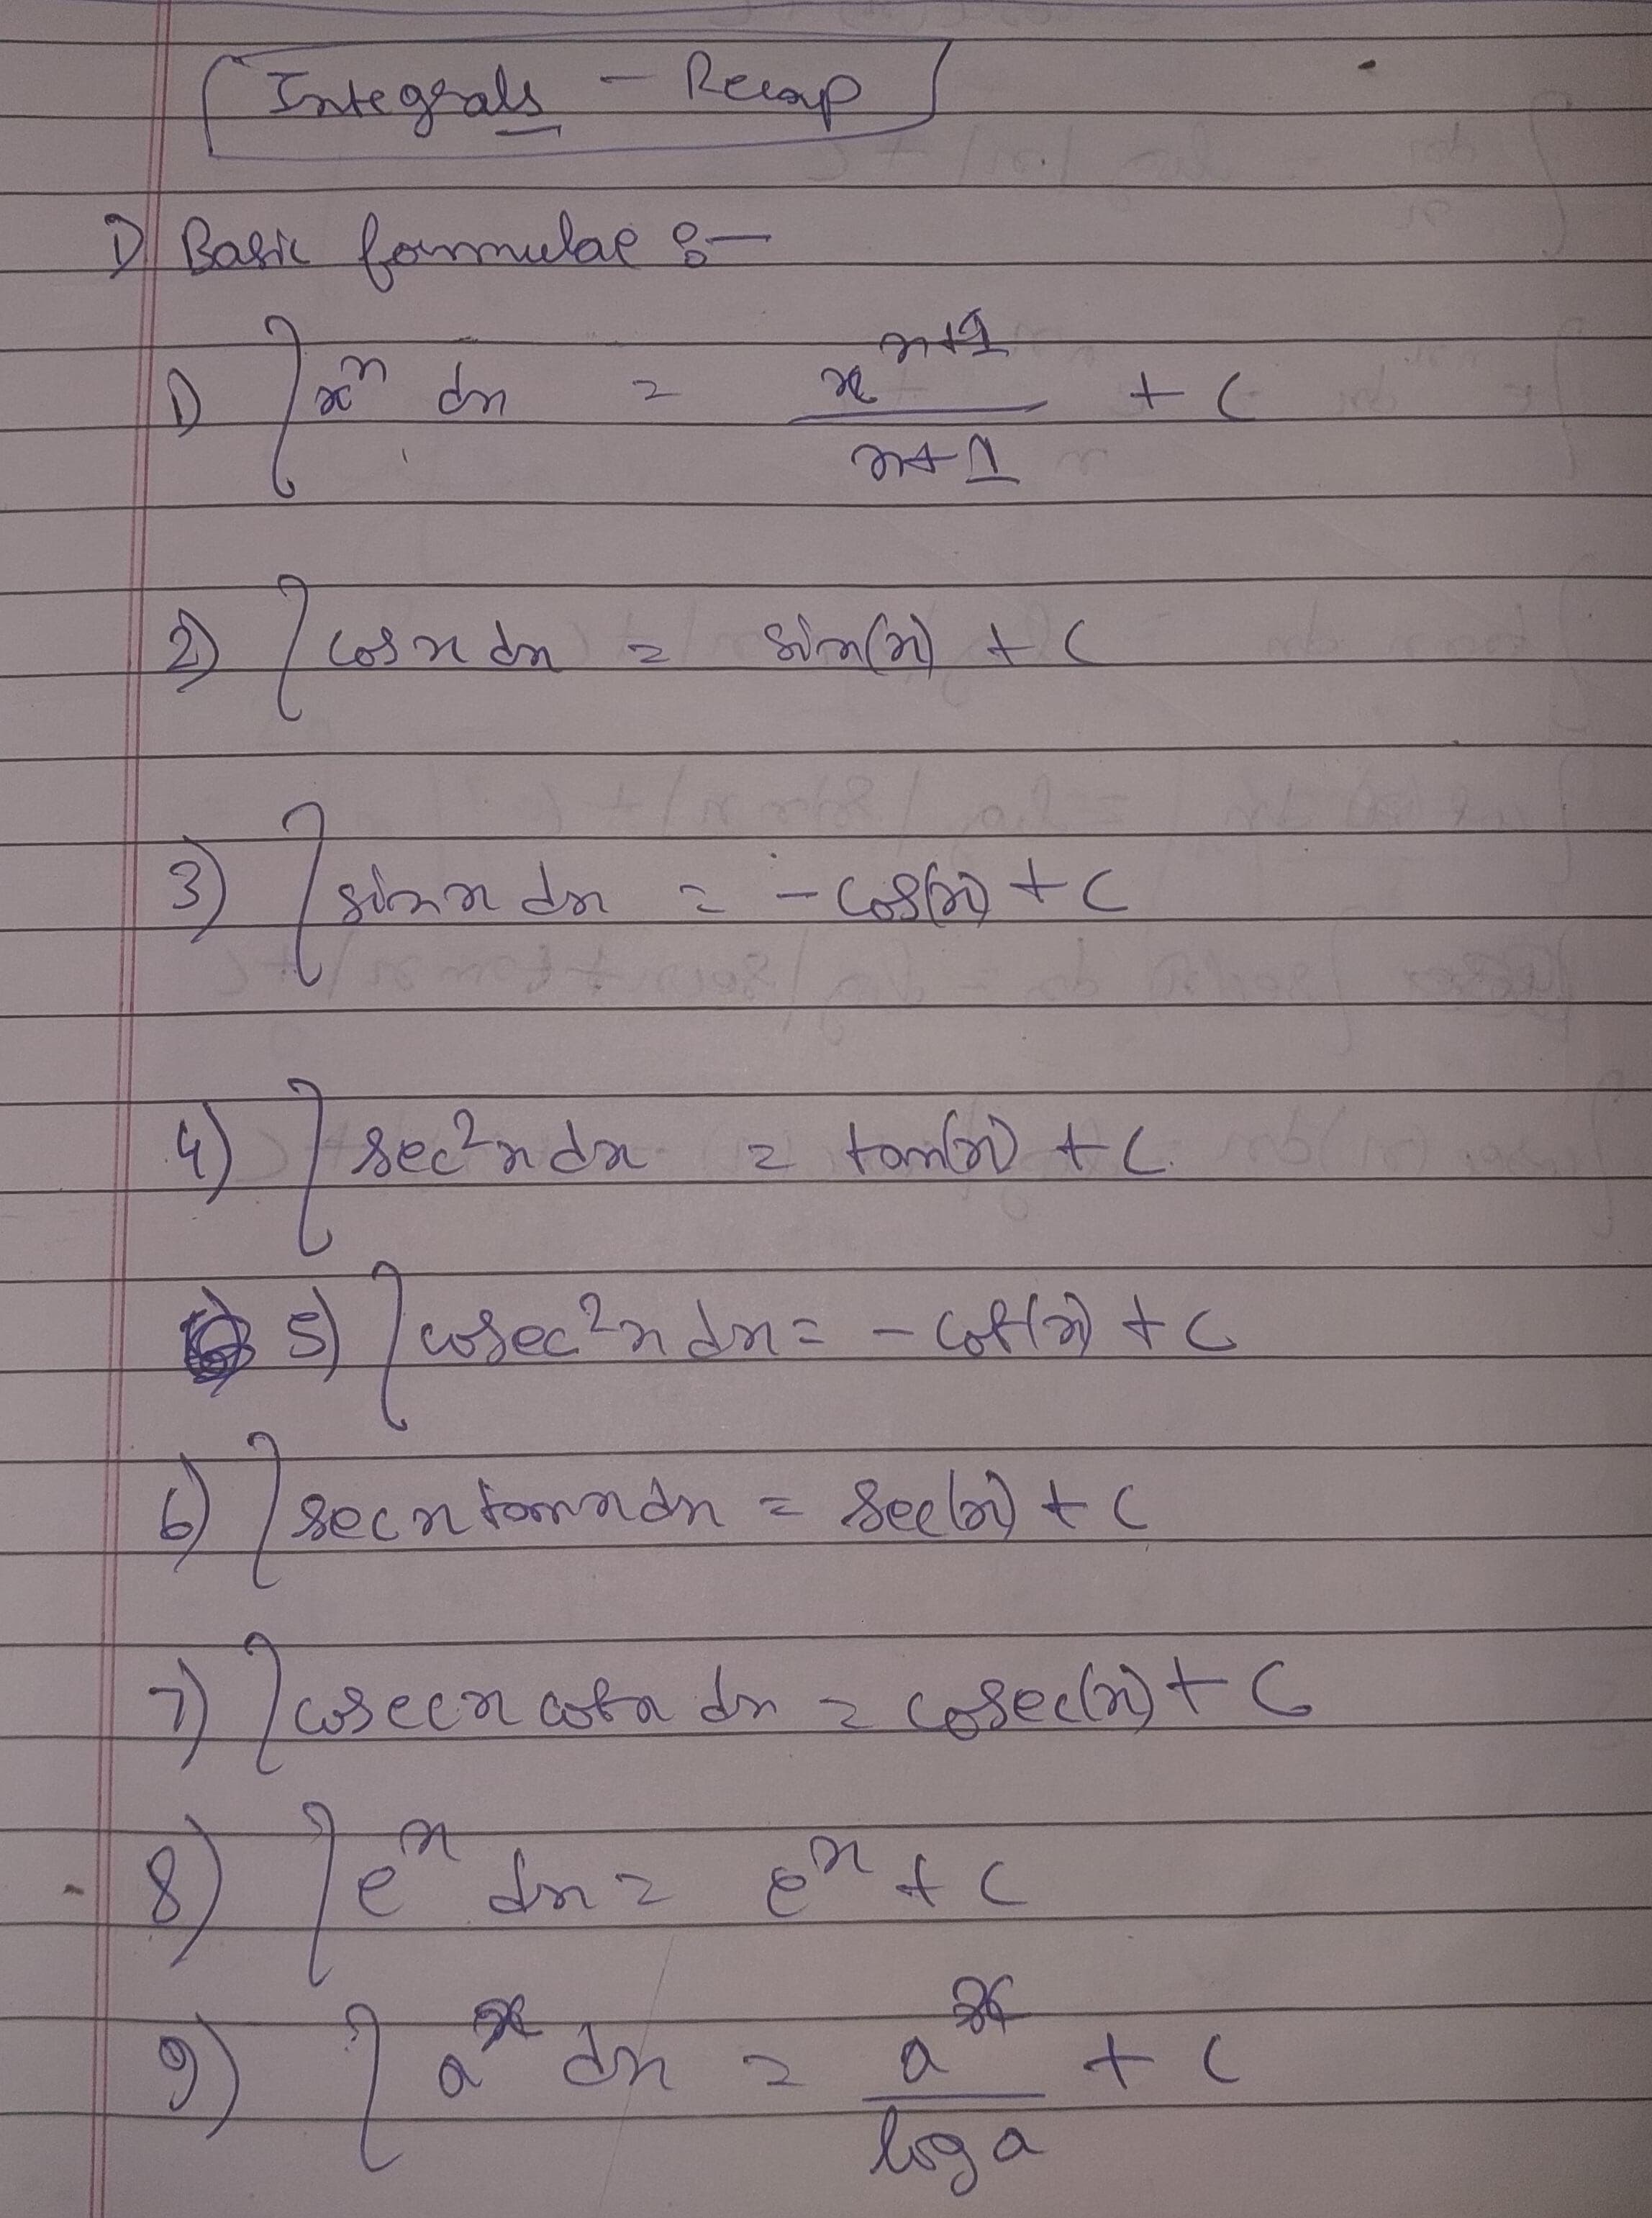 Integrals - Recap
1) Basic formulae :-
1) ∫xⁿ dx = xⁿ⁺¹/n+1 + C
2) ∫cosx dx = sin(x) + C
3) ∫sinx dx = -cos(x) + C
4) ∫sec²x dx = tan(x) + C
5) ∫cosec²x dx = -cot(x) + C
6) ∫secx tanx dx = sec(x) + C
7) ∫cosecx cotx dx = cosec(x) + C
8) ∫eˣ dx = eˣ + C
9) ∫aˣ dx = aˣ/log a + C